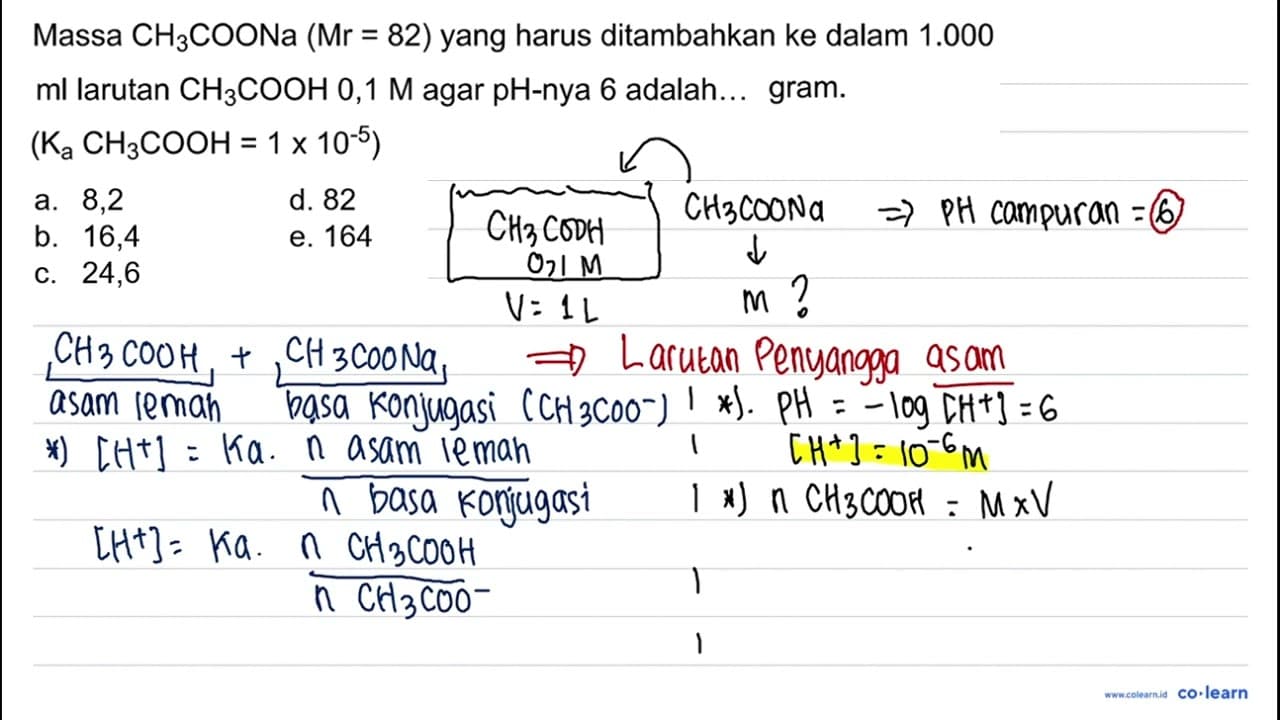 Massa CH₃COONa (Mr = 82) yang harus ditambahkan ke dalam 1.000
ml larutan CH₃COOH 0,1 M agar pH-nya 6 adalah... gram.
(Kₐ CH₃COOH = 1 x 10⁻⁵)
a. 8,2 d. 82
b. 16,4 e. 164
c. 24,6
CH3COOH
0,1 M
V = 1 L
CH3COONa ⇒ PH campuran = 6
↓
m ?
CH3COOH + CH3COONa ⇒ Larutan Penyangga asam
asam lemah basa Konjugasi (CH3COO⁻)
*) [H⁺] = Ka. n asam lemah
n basa Konjugasi
[H⁺] = Ka. n CH3COOH
n CH3COO⁻
*). PH = -log [H⁺] = 6
[H⁺] = 10⁻⁶ M
*) n CH3COOH = M x V
www.colearn.id co·learn